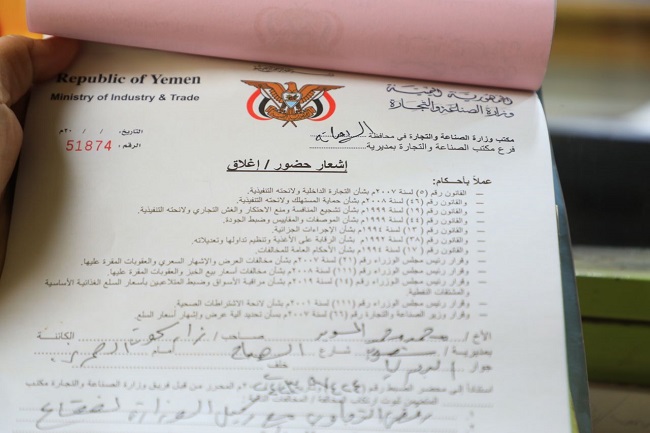 Republic of Yemen
Ministry of Industry & Trade
الجمهورية اليمنية
وزارة الصناعة والتجارة
التاريخ: / / ٢٠م
الرقم: 51874
مكتب وزارة الصناعة والتجارة في محافظة
فرع مكتب الصناعة والتجارة بمديرية
إشعار حضور / إغلاق
عملاً بأحكام:
— القانون رقم (٥) لسنة ٢٠٠٧م بشأن التجارة الداخلية ولائحته التنفيذية.
— والقانون رقم (٤٦) لسنة ٢٠٠٨م بشأن حماية المستهلك ولائحته التنفيذية.
— والقانون رقم (١٩) لسنة ١٩٩٩م بشأن تشجيع المنافسة ومنع الاحتكار والغش التجاري ولائحته التنفيذية.
— والقانون رقم (٤٤) لسنة ١٩٩٩م بشأن المواصفات والمقاييس وضبط الجودة.
— والقانون رقم (١٣) لسنة ١٩٩٤م بشأن الإجراءات الجزائية.
— والقانون رقم (٣٨) لسنة ١٩٩٢م بشأن الرقابة على الأغذية وتنظيم تداولها وتعديلاته.
— والقانون لسنة ١٩٩٤م بشأن الأحكام العامة للمخالفات.
— وقرار رئيس مجلس الوزراء رقم (٢١) لسنة ٢٠٠٧م بشأن مخالفات العرض والإشهار السعري والعقوبات المقررة عليها.
— وقرار رئيس مجلس الوزراء رقم (١١١) لسنة ٢٠٠٨م بشأن مخالفات أسعار بيع الخبز والعقوبات المقررة عليها.
— وقرار رئيس مجلس الوزراء رقم (١٤) لسنة ٢٠١٩م بشأن مراقبة الأسواق وضبط المتلاعبين بأسعار السلع الغذائية الأساسية والمشتقات النفطية
— وقرار رئيس مجلس الوزراء رقم (١١١) لسنة ٢٠٠١م بشأن لائحة الاشتراطات الصحية.
— وقرار وزير الصناعة والتجارة رقم (٦٦) لسنة ٢٠٠٧م بشأن تحديد آلية عرض وإشهار أسعار السلع.
الأخ / محمد صاحب / الكائنة
بمديرية / شارع أمام
جوار خلف
استناداً إلى محضر الضبط رقم ( المحرر من قبل فريق وزارة الصناعة والتجارة مكتب
المتضمن ثبوت ارتكاب المخالفة / المخالفات التالية
رفض التعاون مع وكيل الوزارة